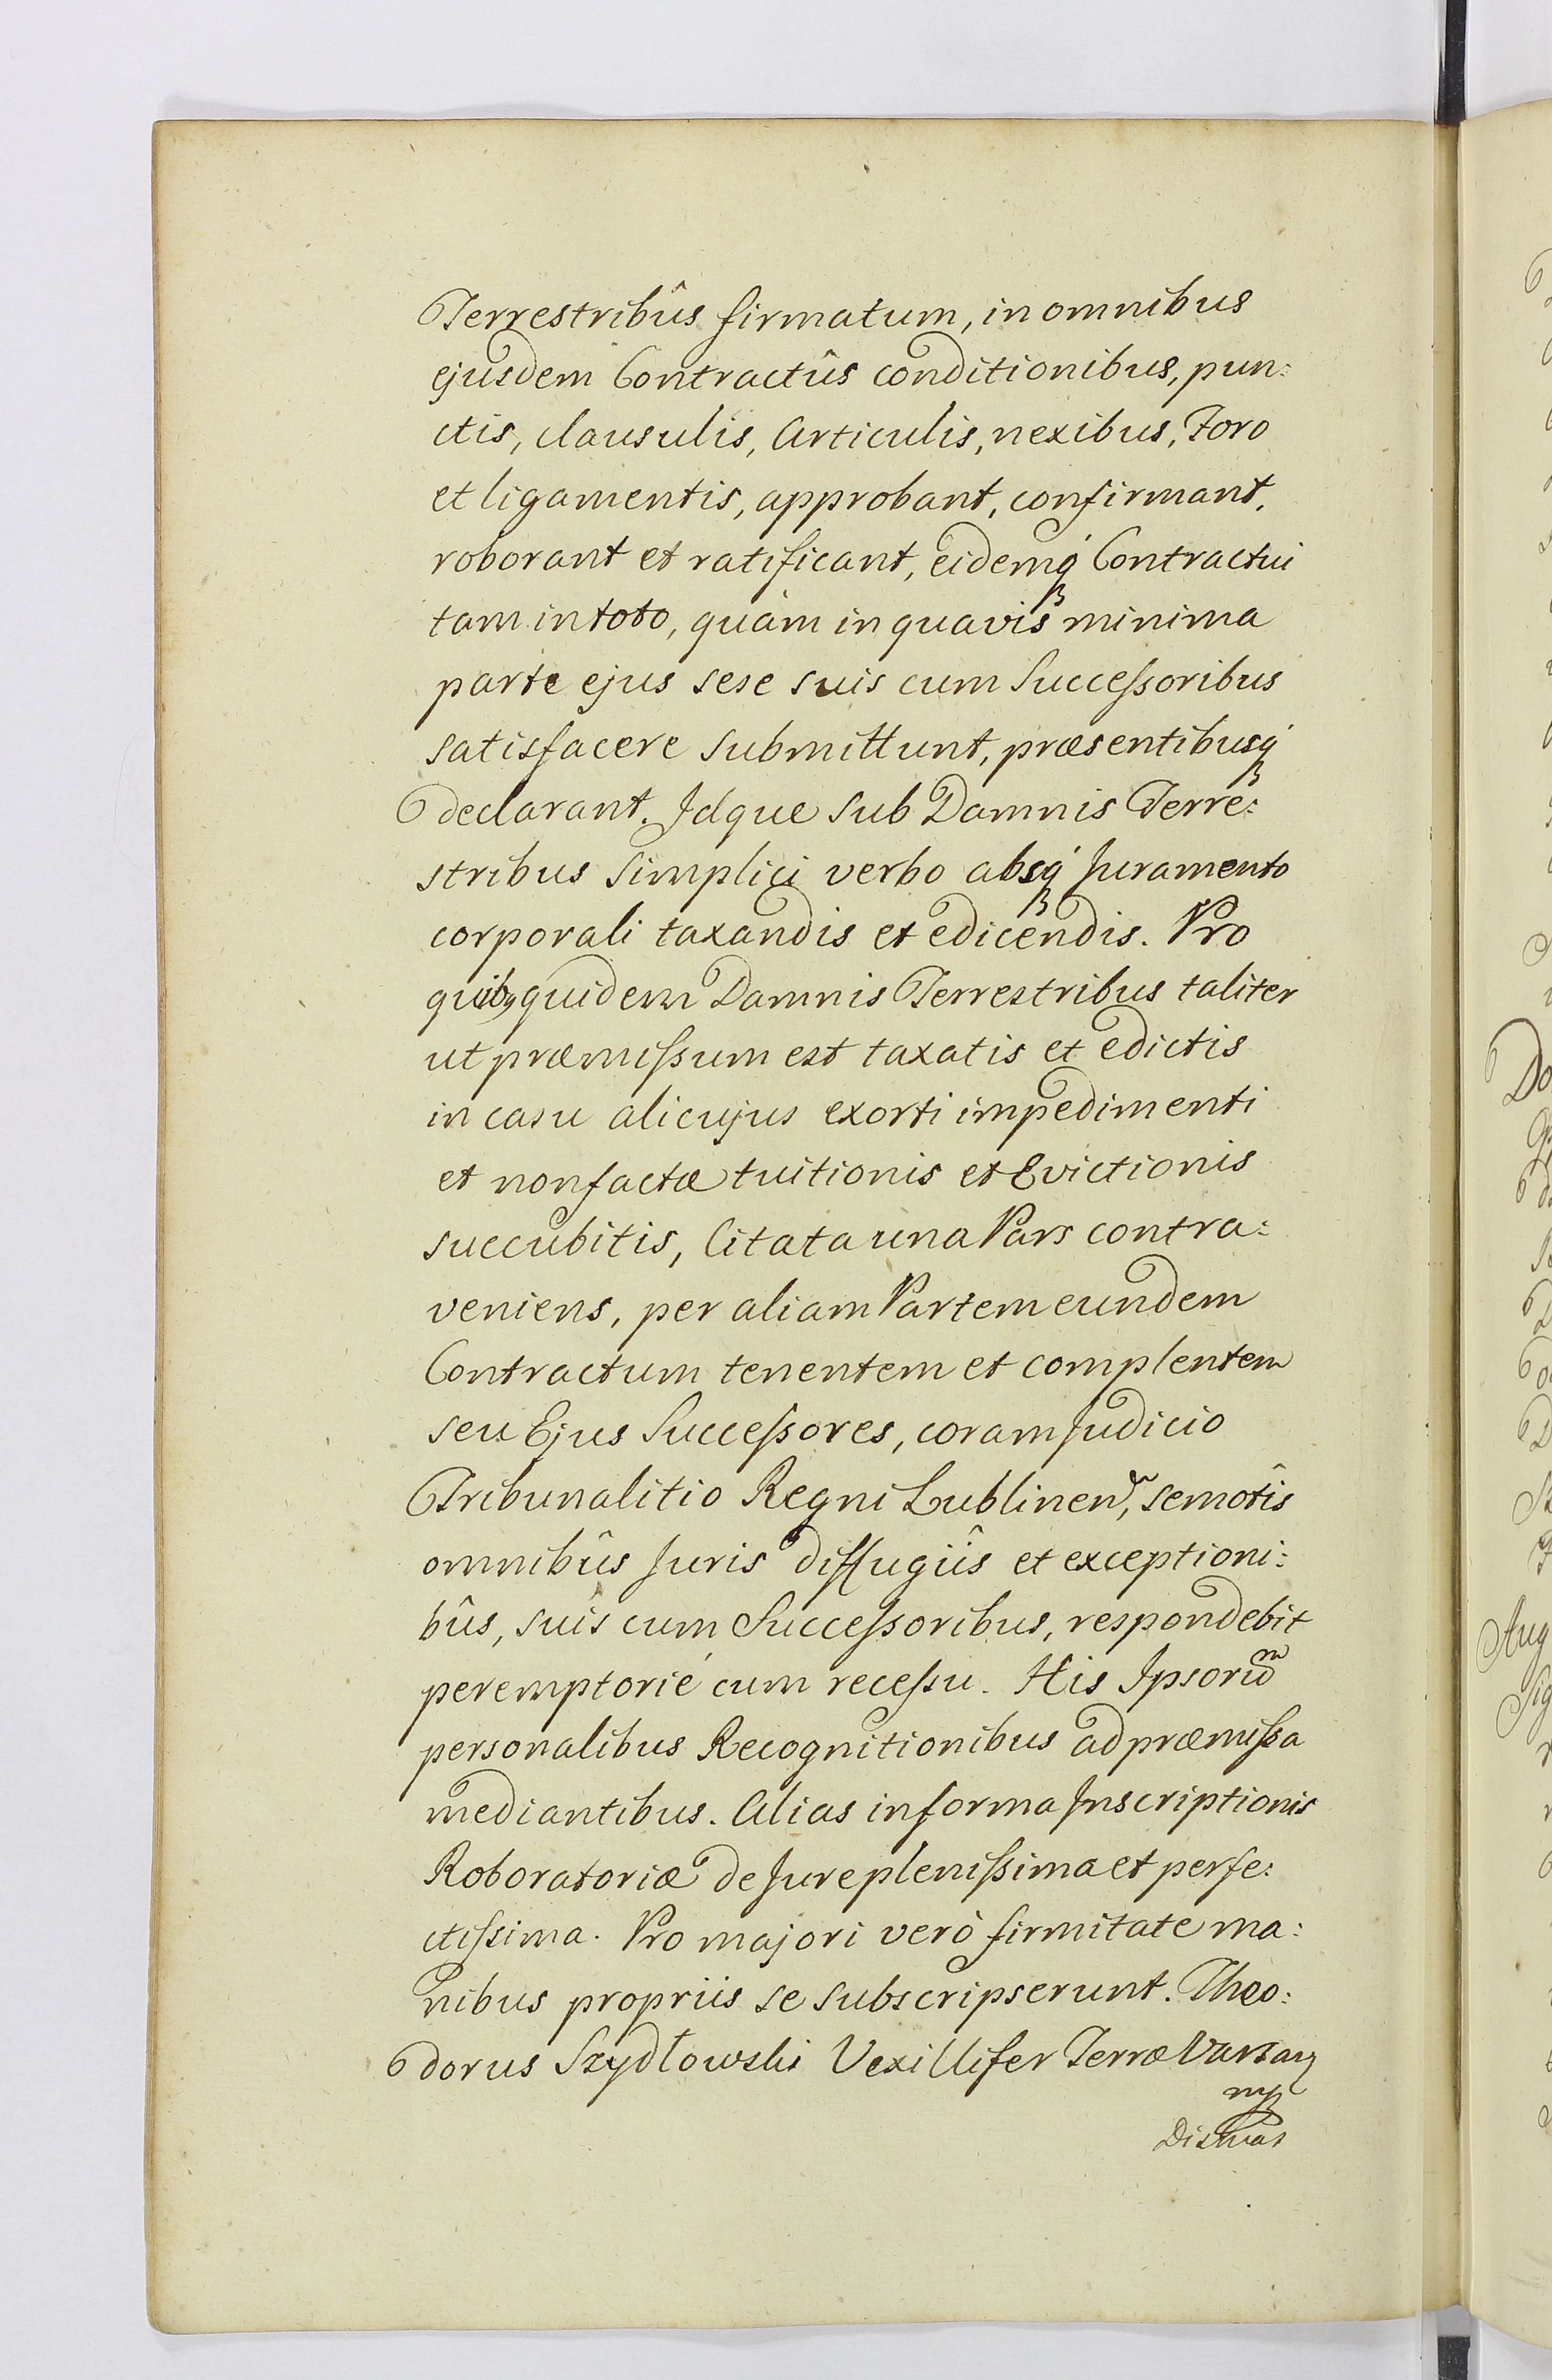 Terrestribûs firmatum, in omnibus
ejusdem Contractûs conditionibus, pun:
ctis, clausulis, Articulis, nexibus, Foro
et ligamentis, approbant, confirmant,
roborant et ratificant, eidemq́ Contractui
tam in toto, quàm in quavis minima
parte ejus sese suis cum Succeſsoribus
satisfacere submittunt, præsentibusq́
declarant. Idque sub Damnis Terre:
stribus simplici verbo absq́ Juramento
corporali taxandis et edicendis. Pro
quibꝰ quidem Damnis Terrestribus taliter
ut præmiſsum est taxatis et edictis
in casu alicujus exorti impedimenti
et non factæ tuitionis et Evictionis
succubitis, Citata una Pars contra:
veniens, per aliam Partem eundem
Contractum tenentem et complentem
seu Ejus Succeſsores, coram Judicio
Tribunalitio Regni Lublinen, semotîs
omnibûs Juris diffugiîs et exceptioni:
bûs, suîs cum Succeſsoribus, respondebit
peremptorié cum receſsu. His Ipsorum
personalibus Recognitionibus ad præmiſsa
mediantibus. Alias in forma Inscriptionis
Roboratoriæ de Jure pleniſsima et perfe:
ctiſsima. Pro majori verò firmitate ma:
nibus propriis se subscripserunt. Theo:
dorus Szydłowski Vexillifer Terræ Varsav
mp
Dismas